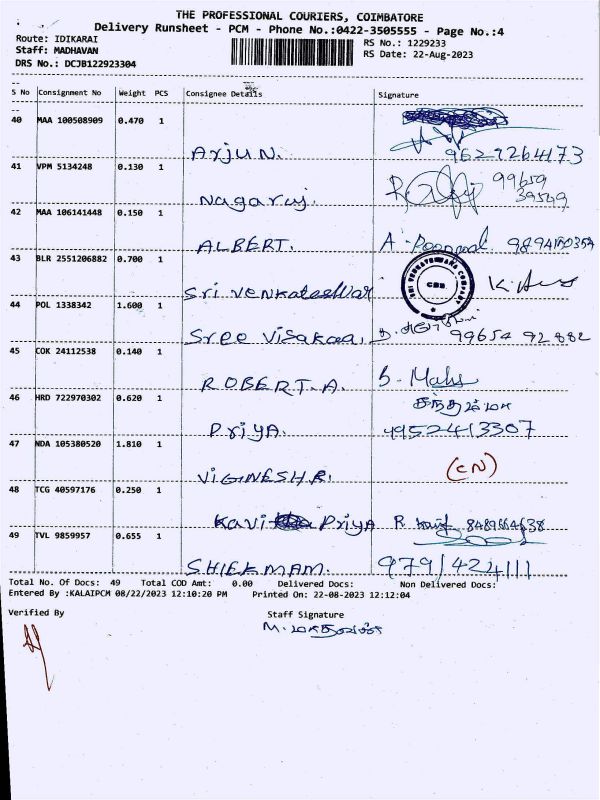 THE PROFESSIONAL COURIERS, COIMBATORE
Delivery Runsheet - PCM - Phone No.:0422-3505555 - Page No.:4
Route: IDIKARAI RS No.: 1229233
Staff: MADHAVAN RS Date: 22-Aug-2023
DRS No.: DCJB122923304
S No Consignment No Weight PCS Consignee Details Signature
40 MAA 100508909 0.470 1
Arjun. 9629264173
41 VPM 5134248 0.130 1 99659
Nagaraj. 39549
42 MAA 106141448 0.150 1
ALBERT. A
43 BLR 2551206882 0.700 1
Sri Venkateshwar
44 POL 1338342 1.600 1
Sree Visakaa. 99654 92882
45 COK 24112538 0.140 1
ROBERT.A.
46 HRD 722970302 0.620 1
Priya. 9952413307
47 NDA 105380520 1.810 1 (CN)
VIGINESH.R.
48 TCG 40597176 0.250 1
Kavi Priya R. 8489664638
49 TVL 9859957 0.655 1
SHIEKMAM. 9791424111
Total No. Of Docs: 49 Total COD Amt: 0.00 Delivered Docs: Non Delivered Docs:
Entered By :KALAIPCM 08/22/2023 12:10:20 PM Printed On: 22-08-2023 12:12:04
Verified By Staff Signature